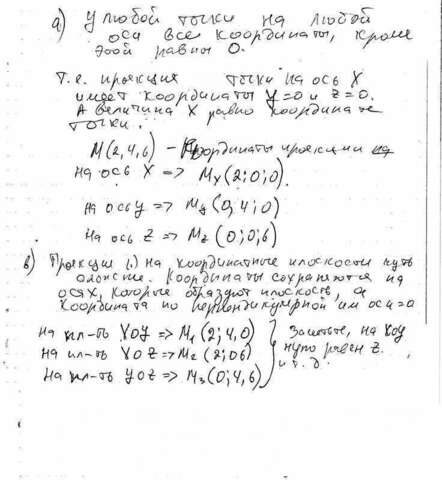 а) У любой точки на любой
оси все координаты, кроме
этой равны 0.
Т.е. проекция точки на ось X
имеет координаты y=0 и z=0.
А величина X равна координате
точки.
M(2,4,6) – координаты проекции
на ось X => Mx(2;0;0)
на ось y => My(0;4;0)
на ось Z => Mz(0;0;6)
в) Проекции на координатные плоскости чуть
сложнее. Координаты сохраняются на
осях, которые образуют плоскость, а
координата по перпендикулярной им оси=0
на пл-ть XOY => M1(2;4,0) Заметьте, на XOY
на пл-ть XOZ => M2(2;0 6) нулю равен Z.
на пл-ть YOZ => M3(0;4,6) и т.д.